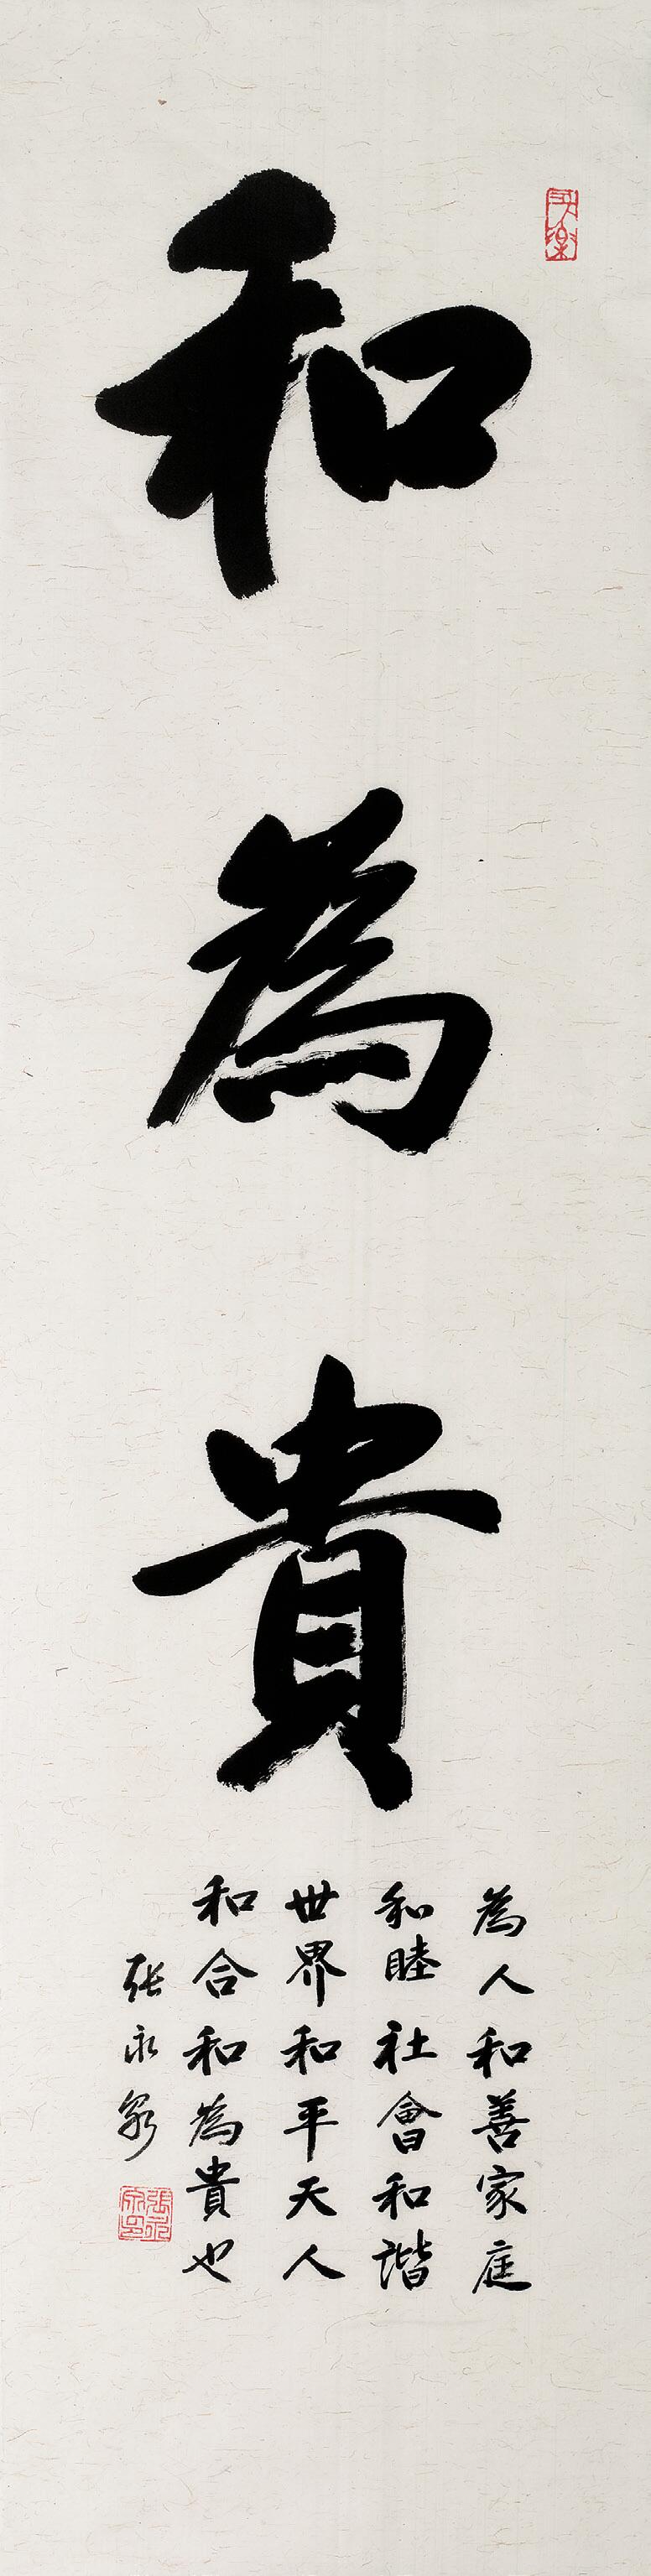 和為貴
為人和善家庭
和睦社會和諧
世界和平天人
和合和為貴也
张永泉